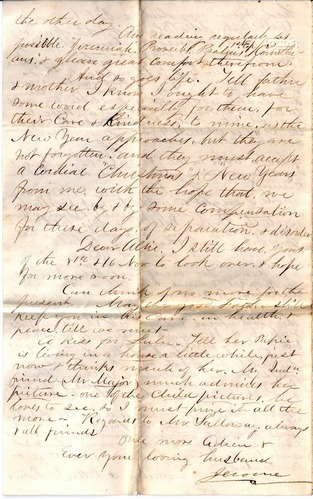 the other day.
Am reading regularly as
possible Jeremiah, Proverbs, Psalms & 1st Corinthi-
ans, & glean great comfort therefrom
And so goes life. Tell father
& mother I know I ought to have
some word especially for them, for
their Care & Kindness to mine, as the
New Year approaches, but they are
not forgotten, and they must accept
a Cordial "Christmas" & "New Years"
from me, with the hope that we
may see by & by some Compensation
for these days of separation, & disorder
Dear I still have yours
of the 8th & 10 Nov to look over & hope
for more soon.
Can think of no more for the
present. May
keep you in health &
peace till we meet
A kiss for Lulu. Tell her Papa
is living in a house a little while, just
now & thinks much of her. My
friend, Mr Major, much admires her
picture - one of the Child pictures, he
loves to see, so I must prize it all the
more - Regards to Mr always
& all friends
Once more Adieu &
Ever Your loving husband
Jerome